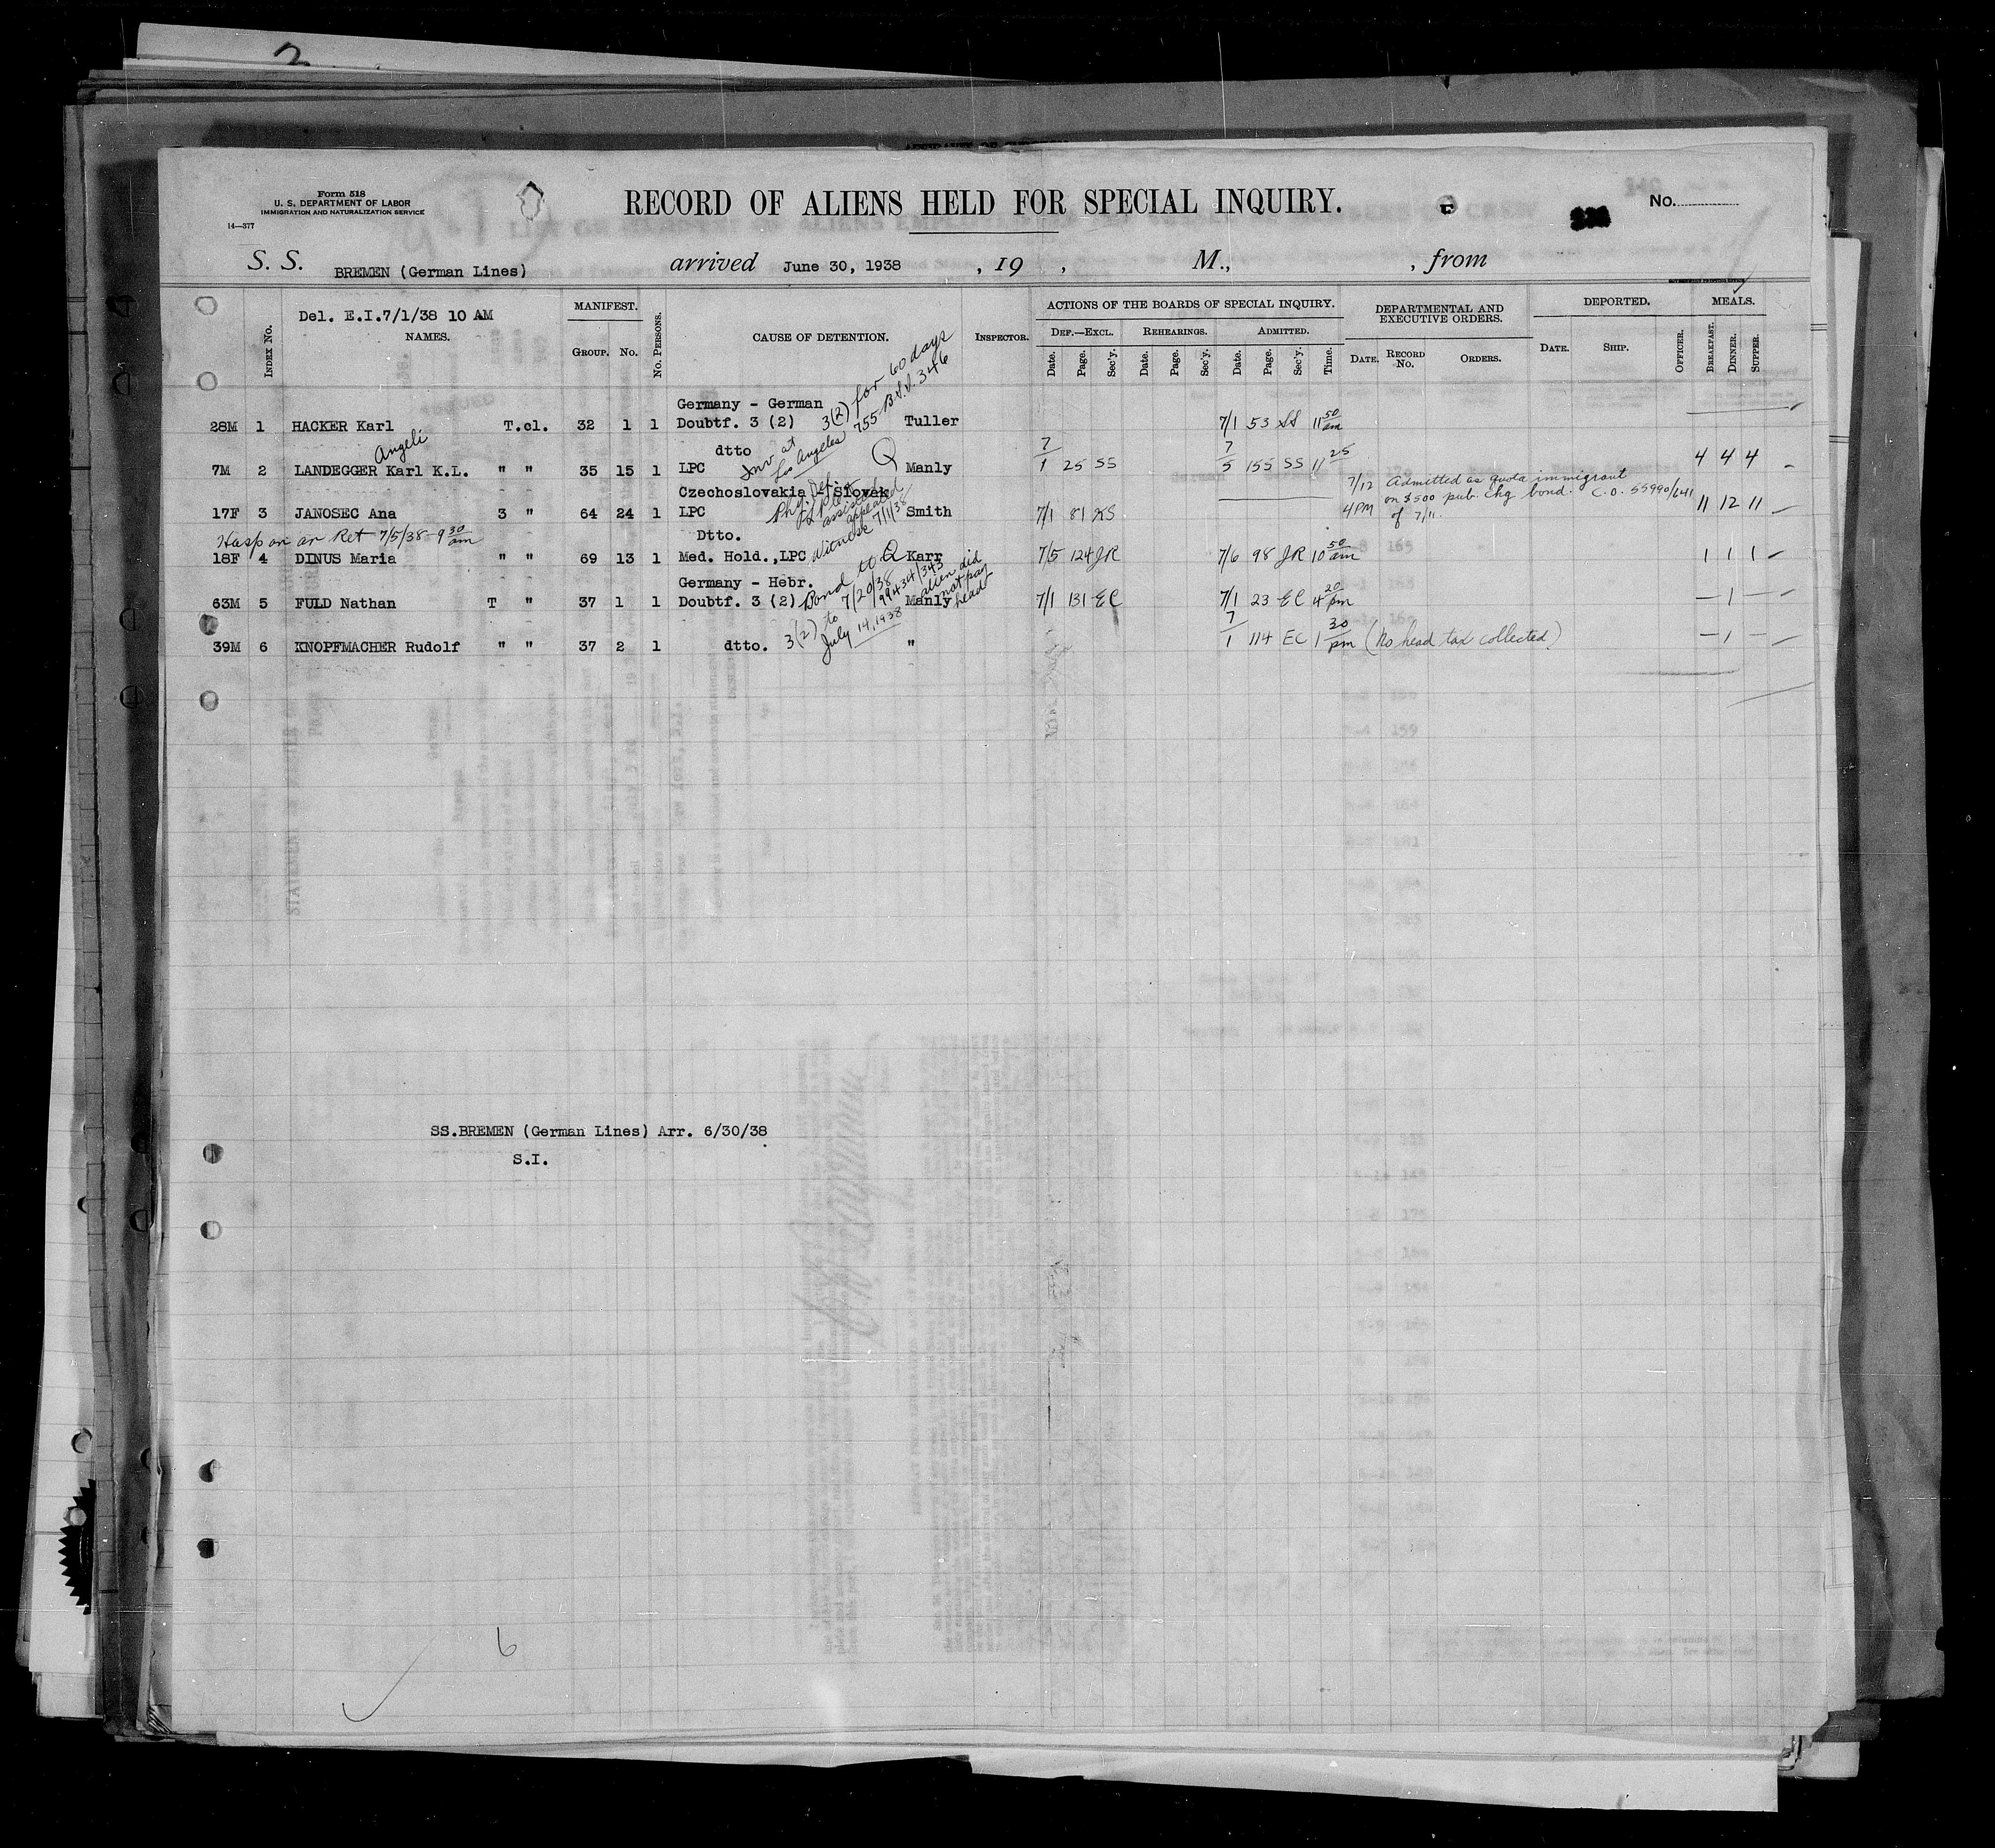 2
Form 518
U. S. DEPARTMENT OF LABOR
IMMIGRATION AND NATURALIZATION SERVICE
14—377
RECORD OF ALIENS HELD FOR SPECIAL INQUIRY.
No.
S. S. BREMEN (German Lines) arrived June 30, 1938 , 19 , M., , from
Del. E.I.7/1/38 10 AM
MANIFEST. ACTIONS OF THE BOARDS OF SPECIAL INQUIRY. DEPARTMENTAL AND EXECUTIVE ORDERS. DEPORTED. MEALS.
INDEX No. NAMES. GROUP. No. No. PERSONS. CAUSE OF DETENTION. INSPECTOR. DEF.—EXCL. REHEARINGS. ADMITTED.
Date. Page. Sec'y. Date. Page. Sec'y. Date. Page. Sec'y. Time. DATE. RECORD No. ORDERS. DATE. SHIP. OFFICER. BREAKFAST. DINNER. SUPPER.
Germany - German 3(2) for 60 days
755 B.S.I. 346
28M 1 HACKER Karl T.cl. 32 1 1 Doubtf. 3 (2) Tuller 7/1 53 SS 11 50 am
Angeli
dtto Inv. at Los Angeles
7M 2 LANDEGGER Karl K.L. " " 35 15 1 LPC Q Manly 7/1 25 SS 7/5 155 SS 11 25 4 4 4
Czechoslovakia - Slovak Phy. Def.
assisted
appealed
7/12 Admitted as quota immigrant
17F 3 JANOSEC Ana 3 " 64 24 1 LPC Smith 7/1 81 KS 4PM on $500 pub. chg bond. C.O. 55990/641 of 7/11. 11 12 11
Hasp on ar Ret 7/5/38-9 30 am
Dtto. Witness 7/1/38
18F 4 DINUS Maria " " 69 13 1 Med. Hold.,LPC Q Karr 7/5 124 JR 7/6 98 JR 10 50 am 1 1 1
Germany - Hebr. Bond to 7/20/38
99434/343
alien did not pay head
63M 5 FULD Nathan T " 37 1 1 Doubtf. 3 (2) Manly 7/1 131 EC 7/1 23 EC 4 20 pm — 1 —
39M 6 KNOPFMACHER Rudolf " " 37 2 1 dtto. 3(2) to July 14, 1938 " 7/1 114 EC 1 30 pm (No head tax collected) — 1 —
SS.BREMEN (German Lines) Arr. 6/30/38
S.I.
6